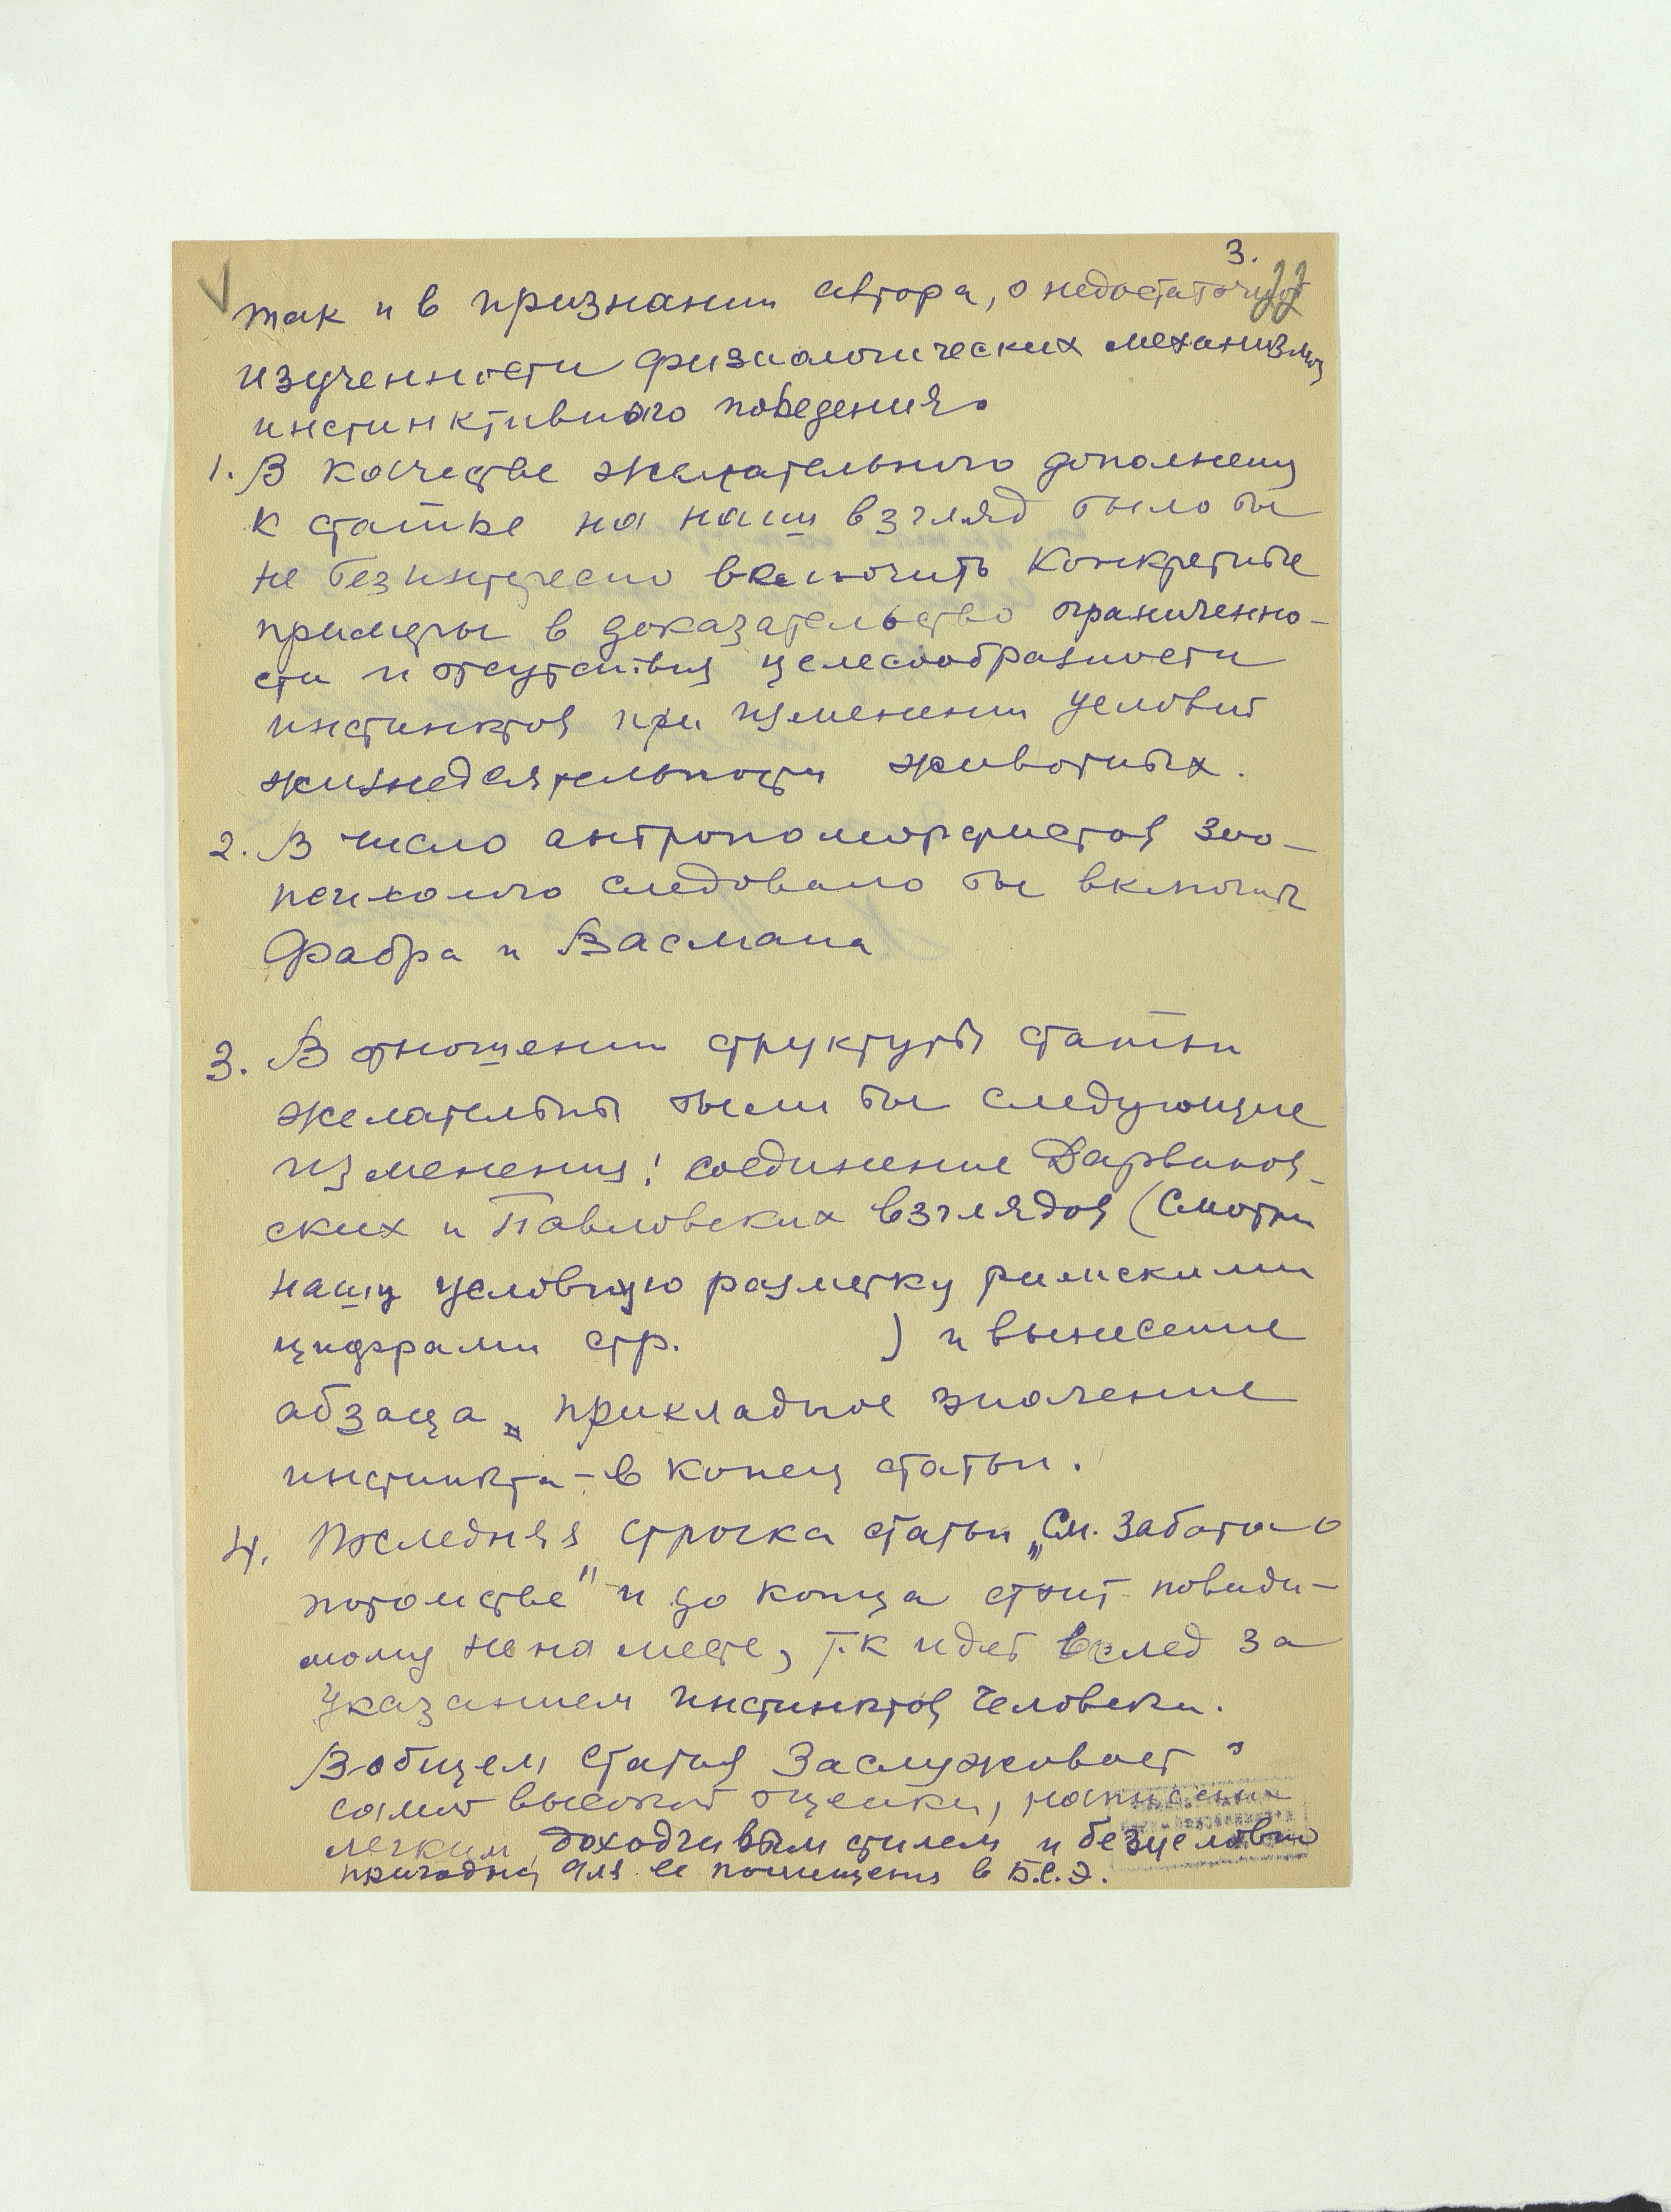 3.
22
так и в признании автора, о недостаточной
изученности физиологических механизмов
инстинктивного поведения.
1. В качестве желательного дополнения
к статье на наш взгляд было бы
не безинтересно включить конкретные
примеры в доказательство ограниченно-
сти и отсутствия целесообразности
инстинктов при изменении условий
жизнедеятельности животных.
2. В число антропоморфистов зоо-
психолого следовало бы включить
Фабра и Васмана
3. В отношении структуры статьи
желательны были бы следующие
изменения: соединение Дарвинов-
ских и Павловских взглядов (смотри
нашу условную разметку римскими
цифрами стр. ) и вынесение
абзаца „прикладное значение
инстинкта – в конец статьи.
4. Последняя строчка статьи „См. Забота о
потомстве" и до конца стоит повиди-
мому не на месте, т.к идет вслед за
указанием инстинктов человека.
В общем статья заслуживает
самой высокой оценки, написана
легким, доходчивым стилем и безусловно
пригодна для ее помещения в Б.С.Э.